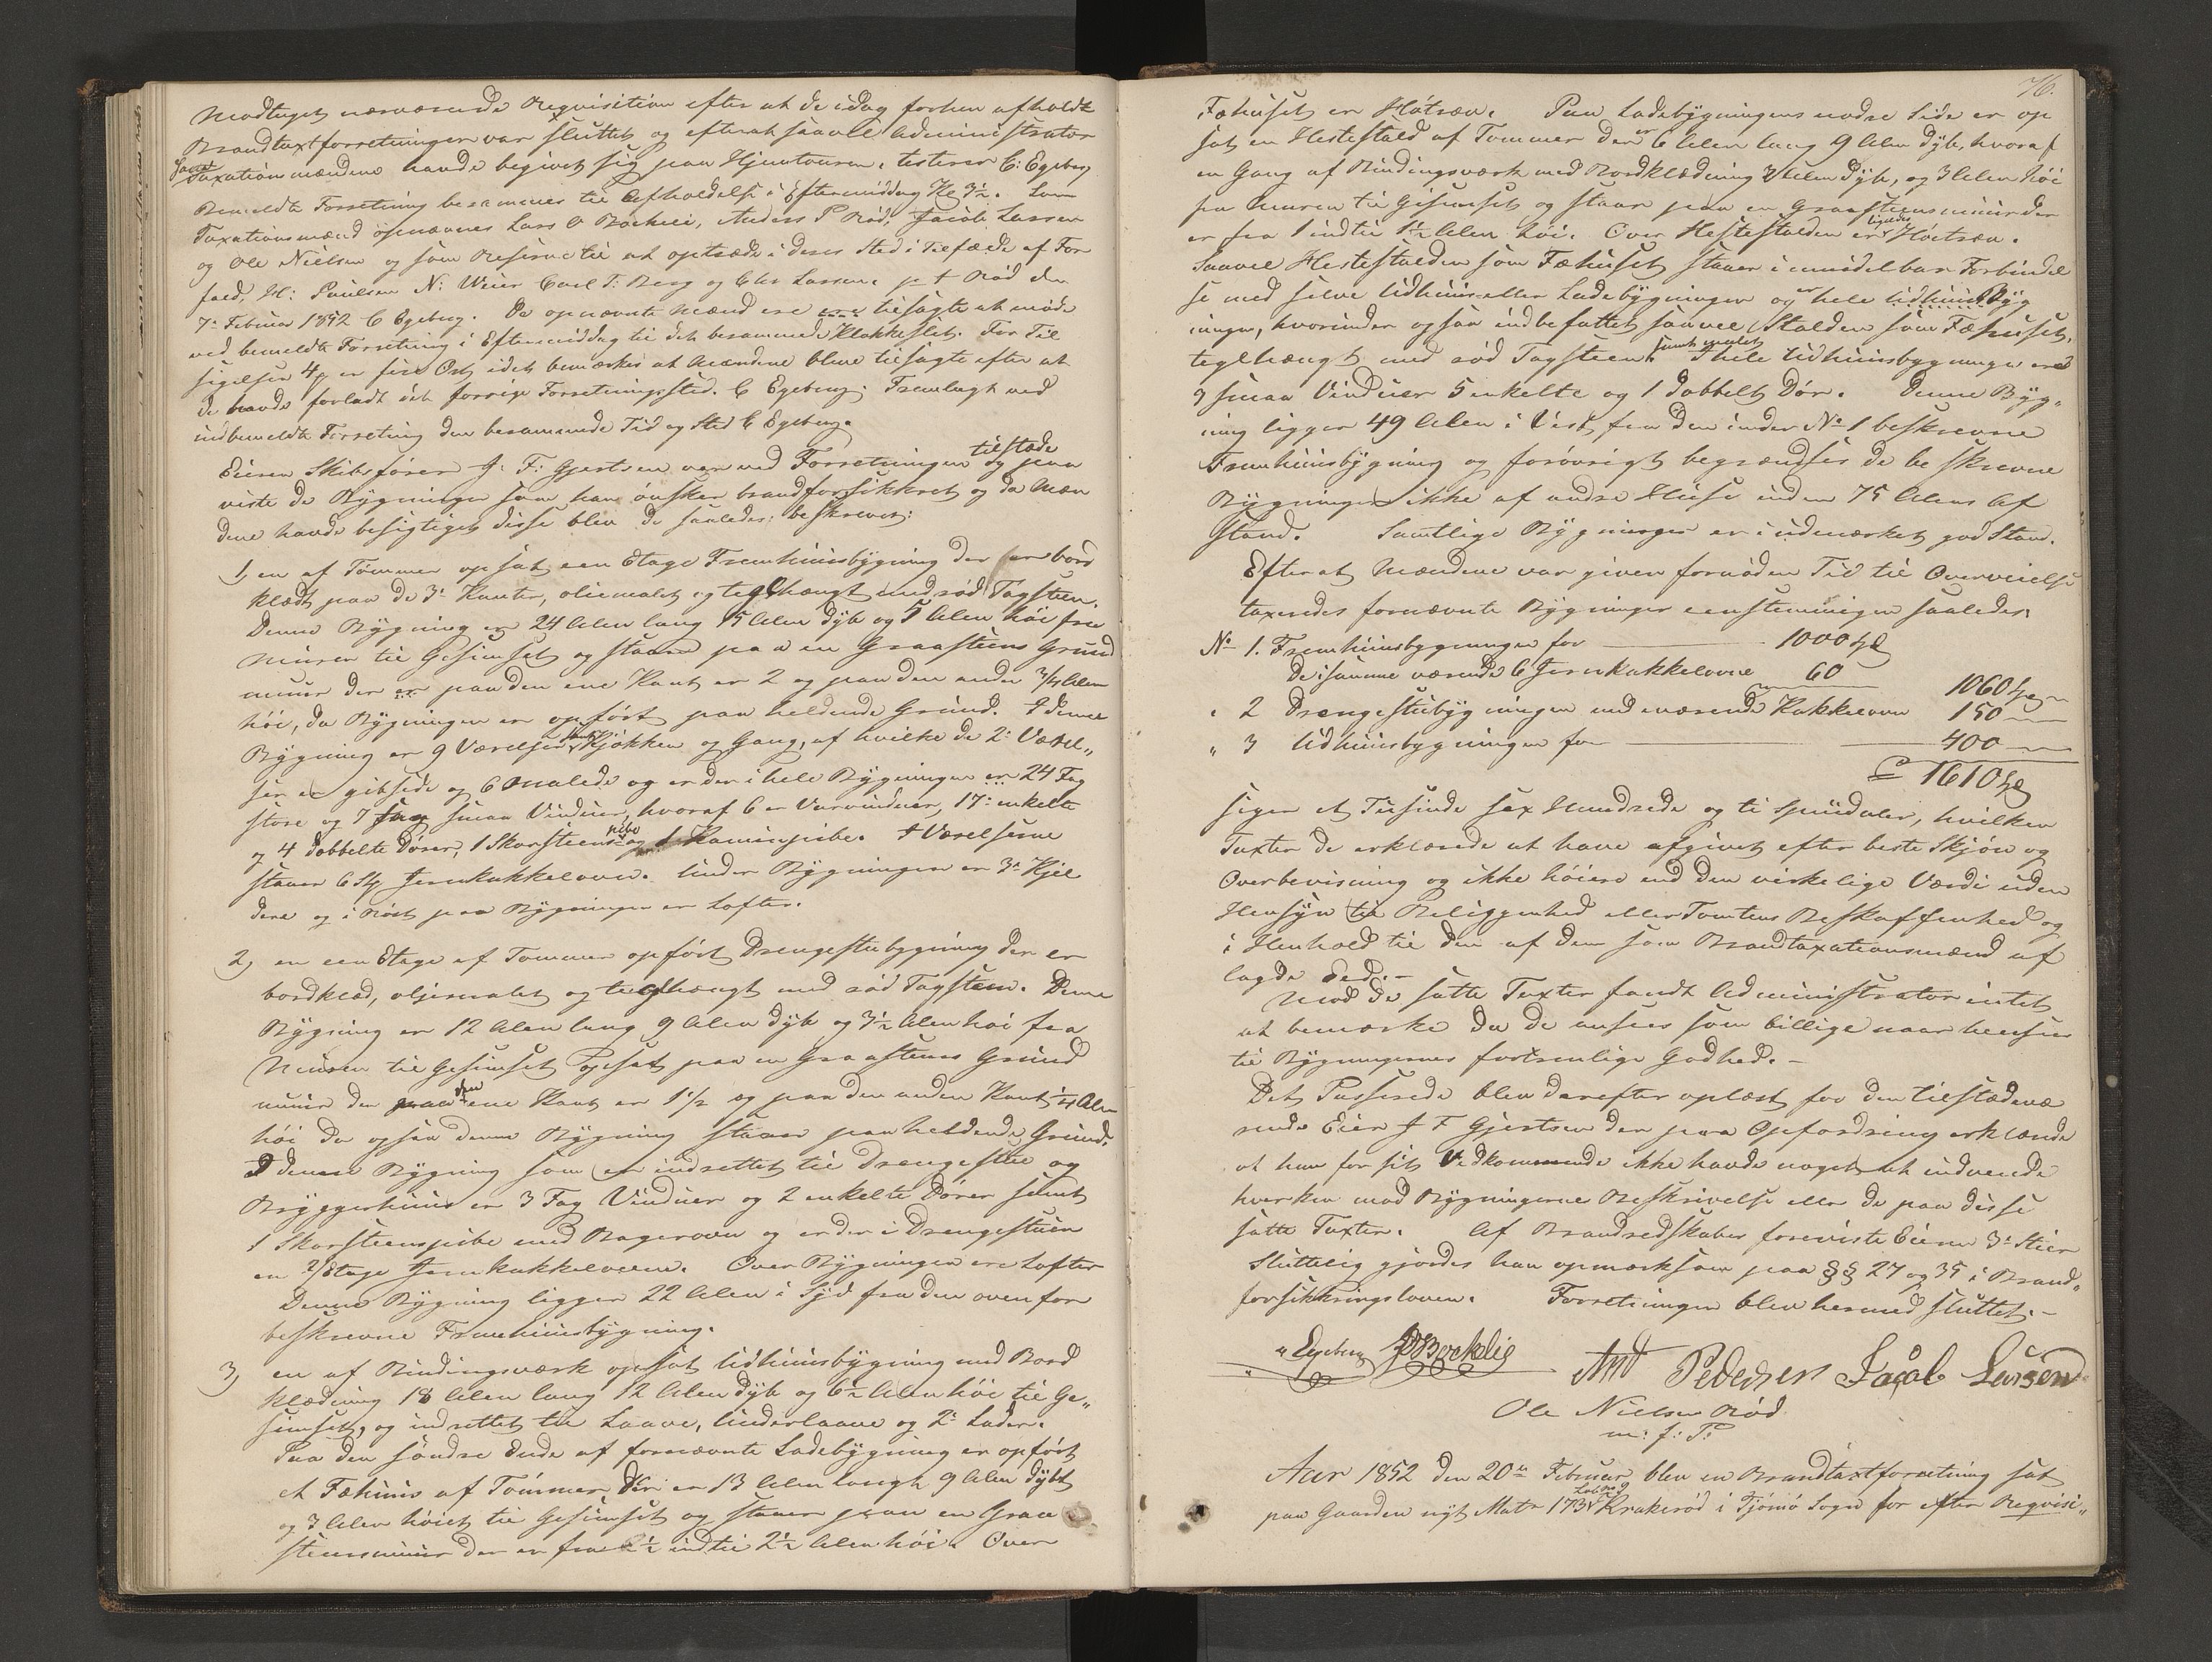 Modtaget nærværende Requisition efter at de idag forhen afholdt
Brandtaxtforretninger var sluttet og efterat saavel Administrator
samt
Taxationsmændene havde begivet sig paa Hjemtouren, testerer C: Egeberg
Bemeldte Forretning berammes til Afholdelse i Eftermiddag Kl 3½. Som
Taxationsmænd opnævnes Lars O Bøchlie, Anders P Rød, Jacob Larsen
og Ole Nielsen og som Reserve til at optræde i deres Sted i Tilfælde af For
fald, H: Paulsen N: Weier Carl T: Berg og Chr Larsen. p t Rød den
7de Februar 1852 C Egeberg. De opnævnte Mænd ere tilsagte at møde
ved bemeldte Forretning i Eftermiddag til det berammede Klokkeslet. For Til
sigelsen 4 er fire Ort idet bemærkes at Mændene bleve tilsagte efter at
de havde forladt det forrige Forretningssted. C Egeberg. Fremlagt ved
indbemeldte Forretning den berammede Tid og Sted C Egeberg.
Eieren Skibsfører J. F: Gjertsen var ved Forretningen tilstæde og paa
viste de Bygninger som han ønsker brandforsikkret og da Mæn
dene havde besigtiget disse blev de saaledes beskrevet:
1, en af Tømmer opsat een Etage Fremhuusbygning der er bord
klædt paa de 3de Kanter, oliemalet og teglhængt med rød Tagsteen.
Denne Bygning er 24 Alen lang 15 Alen dyb og 5 Alen høi fra
Muren til Gesimset og staaer paa en Graasteens Grund
muur der er paa den ene Kant er 2 og paa den anden 3/4 Alen
høi, da Bygningen er opført paa heldende Grund. I denne
Bygning er 9 Værelser samt Kjøkken og Gang, af hvilke de 2de Værel„
ser er gibsede og 6 malede og er der i hele Bygningen er 24 Fag
store og 7 Fag smaa Vinduer, hvoraf 6 er Varvinduer, 17 enkelte
og 4 dobbelte Dører, 1 Skorsteenspibe og 1 Kaminpibe. I Værelserne
staaer 6 Stk Jernkakkelovne. Under Bygningen er 3de Kjel
dere og i Røst paa Bygningen er Lofter.
2, en een Etage af Tømmer opført Drengestubygning der er
bordklæd, oljemalet og teglhængt med rød Tagsteen. Denne
Bygning er 12 Alen lang 9 Alen dyb og 3½ Alen høi fra
Muren til Gesimset opsat paa en Graasteens Grund
muur den paa den ene Kant er 1½ og paa den anden Kant ¼ Alen
høi da ogsaa denne Bygning staaer paa heldende Grund.
I denne Bygning som er indrettet til Drengestue og
Bryggerhuus er 3 Fag Vinduer og 2 enkelte Dører samt
1 Skorsteenspibe med Bagerovn og er der i Drengestuen
en 2/Etage Jernkakkelovn. Over Bygningen ere Lofter
Denne Bygning ligger 22 Alen i Syd fra den ovenfor
beskrevne Fremhuusbygning.
3, en af Bindingsværk opsat Udhuusbygning med Bord
klædning 18 Alen lang 12 Alen dyb og 6½ Alen høi til Ge„
simset, og indrettet til Laave, Underlaave og 2de Lader.
Paa den søndre Ende af fornævnte Ladebygning er opført
et Fæhuus af Tømmer der er 13 Alen langt 9 Alen dybt
og 3 Alen høiet til Gesimset og staaer paa en Graa
steensmuur der er fra ½ indtil 2½ Alen høi. Over
76.
Fæhuset er Høtræv. Paa Ladebygningens nordre Side er op
sat en Hestestald af Tømmer der er 6 Alen lang 9 Alen dyb, hvoraf
en Gang af Bindingsværk med Bordklædning 3 Alen dyb, og 3 Alen høi
fra Muren til Gesimset og staaer paa en Graasteensmuur der
er fra 1 indtil 1½ Alen høi. Over Hestestalden er ligeledes Høetræv.
Saavel Hestestalden som Fæhuset staaer i umiddelbar Forbindel
se med selve Udhuus eller Ladebygningen og er hele Udhuus Byg
ningen, hvorunder ogsaa indbefattet saavel Stalden som Fæhuset,
teglhængt med rød Tagsteen samt malet I hele Udhuusbygningen er
9 smaa Vinduer 5 enkelte og 1 dobbelt Dør. Denne Byg„
ning ligger 49 Alen i Vest fra den under No 1 beskrevne
Fremhuusbygning og forøvrigt begrændses de beskrevne
Bygninger ikke af andre Huse inden 75 Alens Af
stand. Samtlige Bygninger er i udmærket god Stand.
Efterat Mændene var given fornøden Tid til Overveielse
taxeredes fornævnte Bygninger eenstemmigen saaledes:
No 1. Fremhuusbygningen for 1000 Spd
De i samme værende 6 Jernkakkelovne 60 1060 Spd
„ 2 Drengestubygningen med værende Kakkelovn 150
„ 3 Udhuusbygningen for 400
1610 Spd
siger et Tusinde sex Hundrede og ti Speciedaler, hvilken
Taxter de erklærede at have afgivet efter beste Skjøn og
Overbevisning og ikke høiere end den virkelige Værdi uden
Hensyn til Beliggenhed eller Tomtens Beskaffenhed og
i Henhold til den af dem som Brandtaxationsmænd af
lagde Eed.-
Mod de satte Taxter fandt Administrator intet
at bemærke da de ansees som billige naar hensees
til Bygningernes fortrinlige Godhed.-
Det Passerede blev derefter oplæst for den tilstædevæ
rende Eier J F Gjertsen der paa Opfordring erklærede
at han for sit Vedkommende ikke havde noget at indvende
hverken mod Bygningerne Beskrivelse eller de paa disse
satte Taxter. Af Brandredskaber foreviste Eieren 3de Stier
Sluttelig gjordes han opmærksom paa §§ 27 og 35 i Brand„
forsikkringsloven. Forretningen blev hermed sluttet.-
Egeberg Bøchlie And Pedersen Jacob Larsen
Ole Nielsen Rød
m: f: P:
Aar 1852 den 20de Februar blev en Brandtaxtforretning sat
paa Gaarden nyt Matr 173 Lob No 9 Krakerød i Tjømø Sogn for efter Reqvisi„